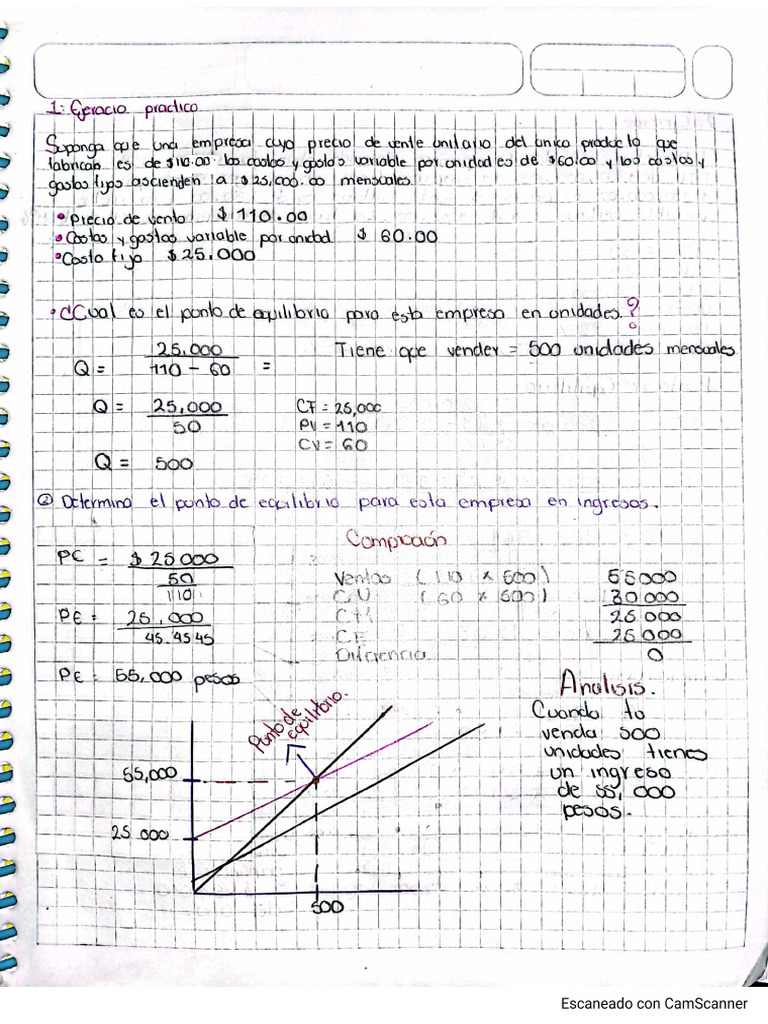 1: Ejercicio practico
Suponga que una empresa cuyo precio de vente unitario del unico producto que
fabrican es de $110.00 los costos y gastos variable por unidades de $60.00 y los costos y
gastos fijos ascienden a $25,000.00 mensuales.
• Precio de venta $ 110.00
• Costos y gastos variable por unidad $ 60.00
• Costo fijo $ 25.000
• ¿Cual es el punto de equilibrio para esta empresa en unidades?
Q = 25,000 / 110 - 60 =
Tiene que vender = 500 unidades mensuales
Q = 25,000 / 50
CF = 25,000
PV = 110
CV = 60
Q = 500
② Determina el punto de equilibrio para esta empresa en ingresos.
PE = $ 25 000 / 50 / 110
PE = 25,000 / 45.4545
PE = 55,000 pesos
Comproación
Ventas (110 x 500) 55000
C.V (60 x 500) 30 000
CM 25 000
CF 25 000
Diferencia 0
Analisis.
Cuando to
venda 500
unidades tienes
un ingreso
de 55,000
pesos.
Punto de
equilibrio.
55,000
25 000
500
Escaneado con CamScanner